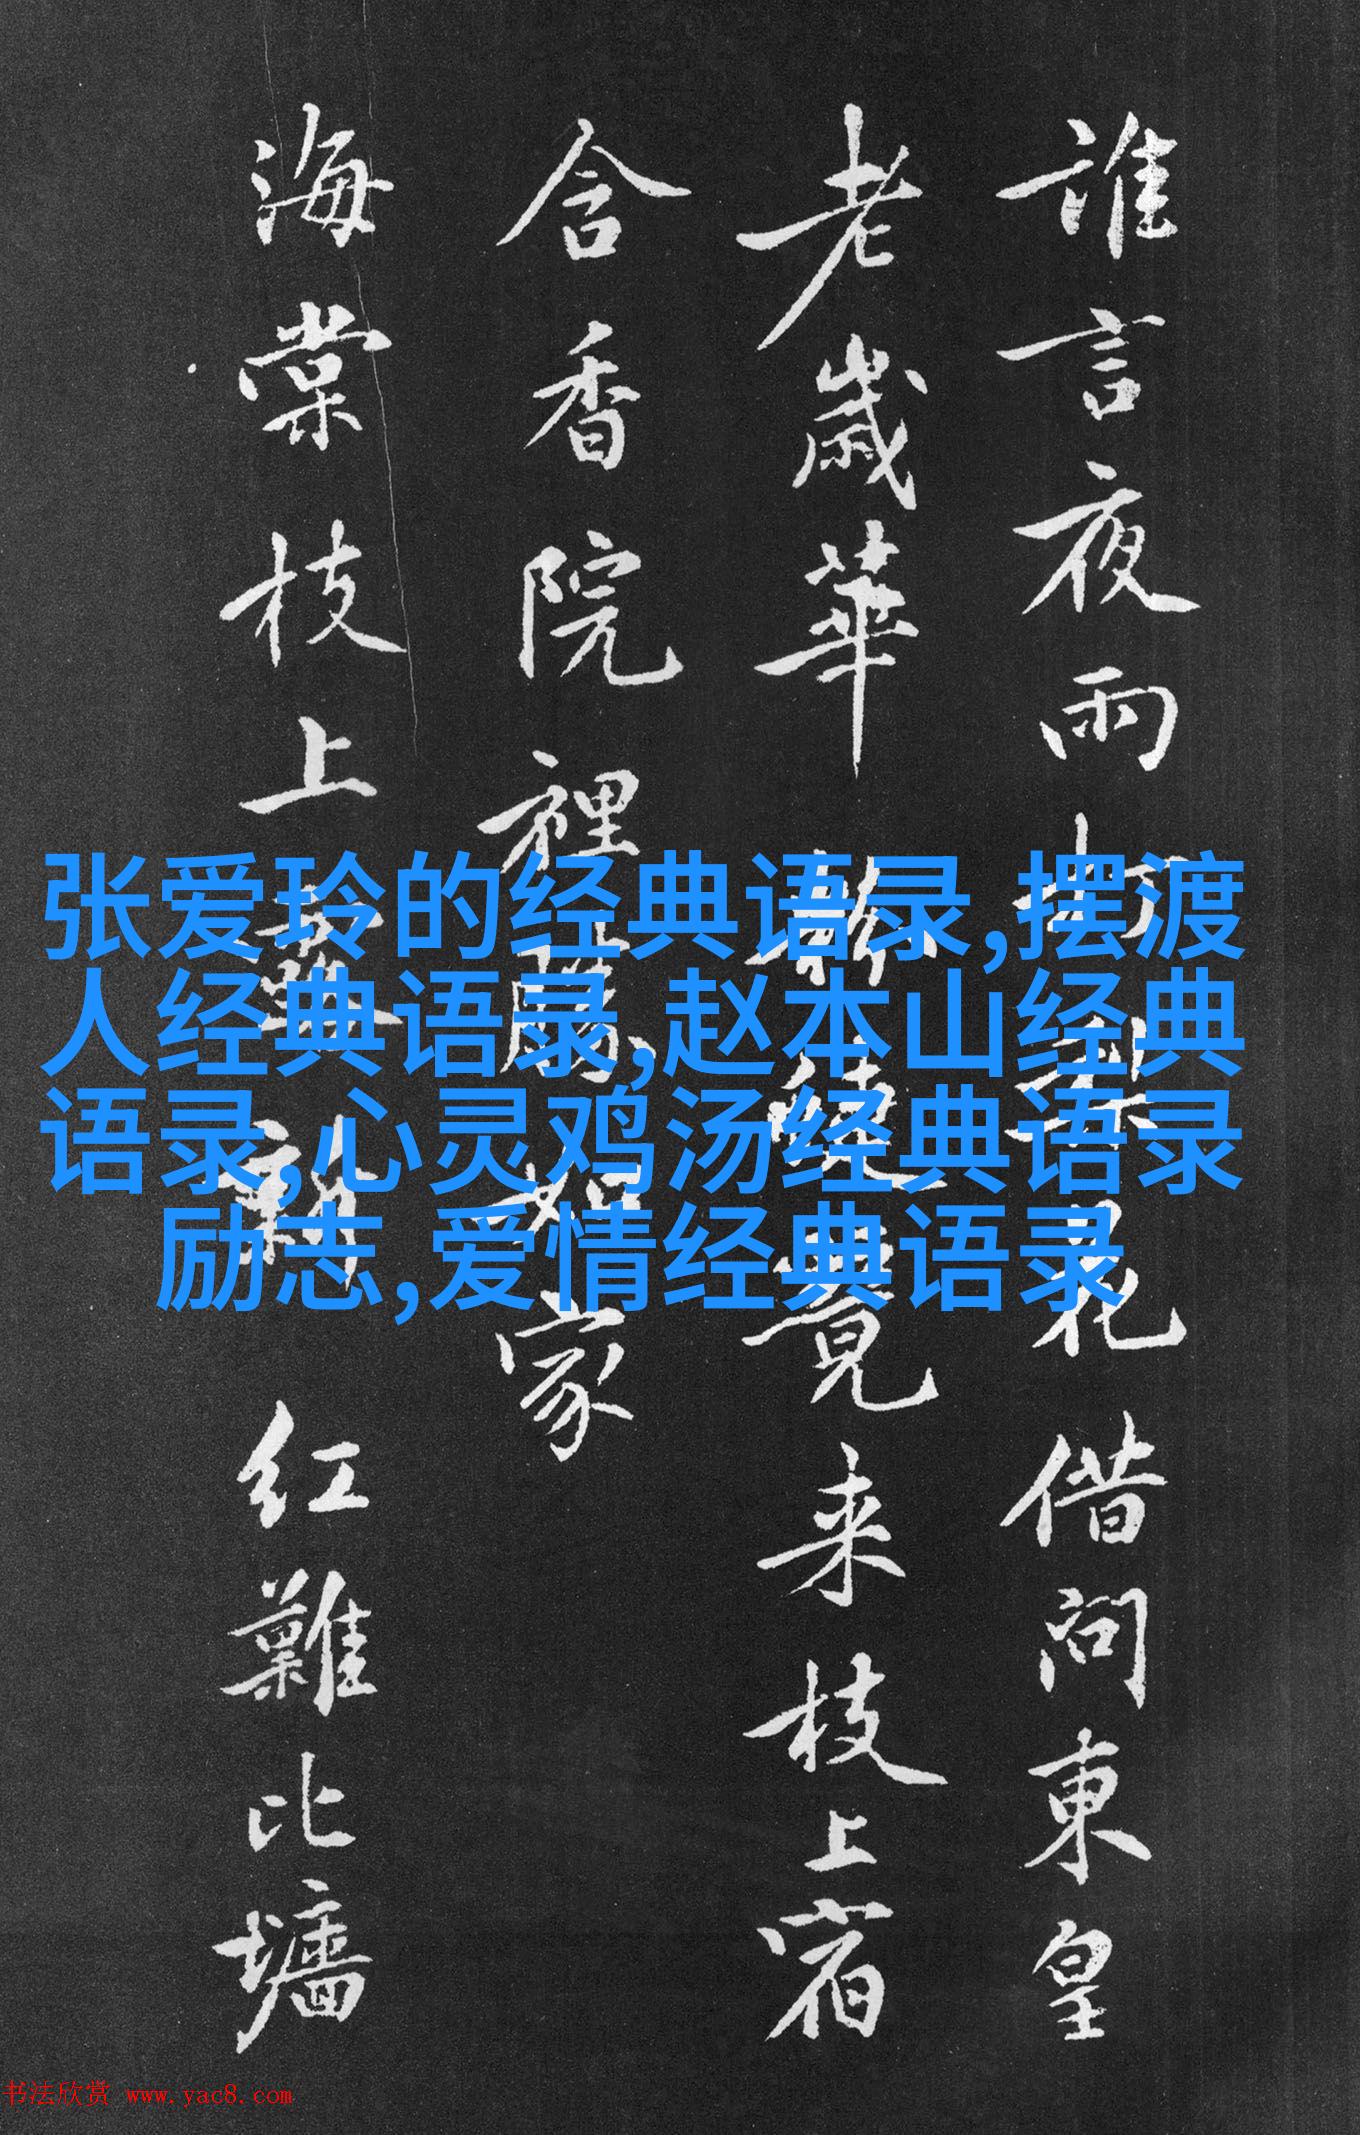 誰言夜雨打梨花借問東皇
老歲華覓来枝上宿
含香院裡如家
海棠枝上新红難比墻
张爱玲的经典语录,摆渡
人经典语录,赵本山经典
语录,心灵鸡汤经典语录
励志,爱情经典语录
书法欣赏 www.yac8.com